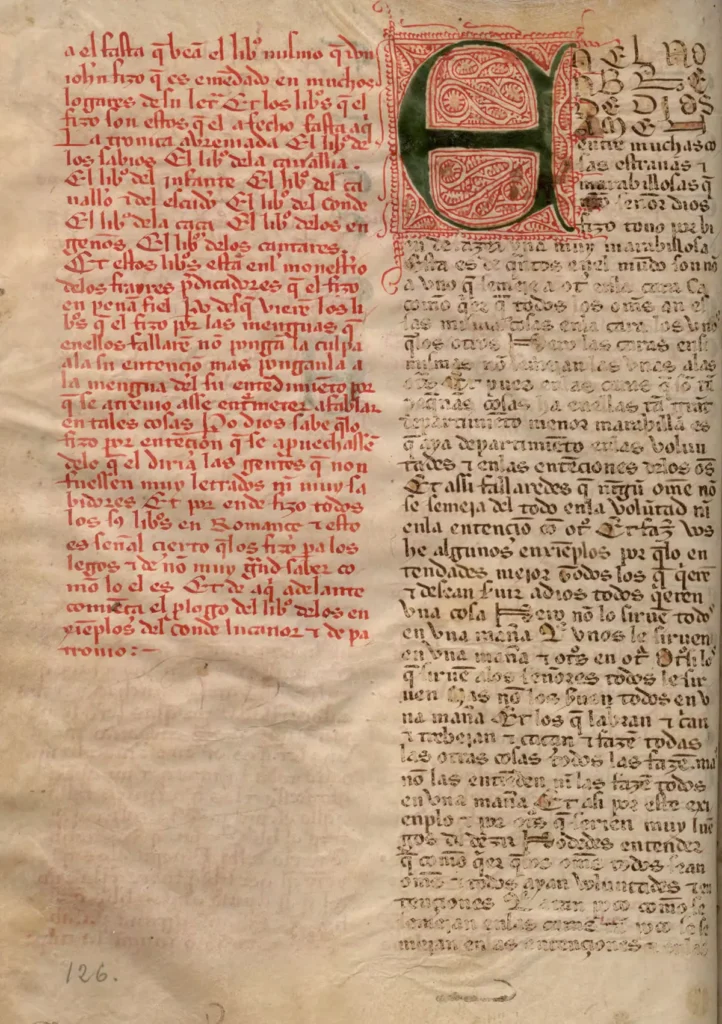 a el fasta q̄ vea͂ el lib° mismo q̄ don
ioħn fizo q̄ es em̄edado en muchos
logares de su let͂ Et los lib°s q̄ el
fizo son estos q̄ el a fecho fasta aq̄
La cronica abreuiada El lib° de
los sabios El lib° dela caualłia
El lib° del infante El lib° del ca
uallo ⁊ del escud͂o El lib° del conde
El lib° dela caça El lib° delos en
genos El lib° delos cantares
Et estos lib°s esta͂ en͂l monesťio
delos frayres p̄dicadores q̄ el fizo
en pen̄a fiel P͂o desq̄ viere͂ los li
b°s q̄ el fizo por las menguas q̄
enellos fallare͂ nō pongā la culpa
ala su entenciō mas pongan̄la a
la mengua del su entēdimi͂eto por
q̄ se atreuio asse ent͂meter a fablar
en tales cosas P͂o dios sabe q̄lo
fizo por entēcion q̄ se ap̄uechassē
delo q̄ el diria̅ las gentes q̄ non
fuessen muy letrados nj̄ muy sa
bidores Et por ende fizo todos
los sꝯ lib°s en Romançe ⁊ esto
es señal cierto q̄los fizo pa los
legos ⁊ de nō muy g̃nd saber co
mō lo el es Et de aq̄ adelante
comiēça el p̄logo del lib° delos en
xienplos del conde lucanor ⁊ de pa
tronio :~
EN EL NO
BRE
DE DIOS
AMEN
entre muchas co
sas estrañas ⁊
marabillosas q̄
n͂ro señor dios
fizo touo por bi
en de fazer vna muy marabillosa
esta es de q̄ntos en el mūdo son nō
a vno q̄ semeje a ot͂ en la cara Ca
comō q̄er q̄ todos los oms̄ an es
sas mismas cosas enla cara los vnos
q̄los otros Pero las caras en si
mismas nō semejan las vnas alas
ot͂s Et pues enlas caras q̄ sō tā
peq̄ñas cosas ha enellas tā grāt
departimiēto menor marabilla es
q̄ aya departimiēto enlas volun
tades ⁊ enlas entēciones delos oms̄
Et assi fallaredes q̄ njngū ome nō
se semeja del todo enla volūtad nj̄
enla entenciō cō ot͂ Et faz͂ vos
he algunos enxienplos por q̄lo en
tendades mejor Todos los q̄ q̄erē
⁊ desean s͂uir a dios todos q̄eren
vna cosa Pero nō lo siruē todos
en vna manā Q͂ vnos le siruen
en vna manā ⁊ ot͂s en ot͂ Ot͂si los
q̄ siruē alos señores todos le sir
uen Mas nō los siruen todos en v
na manā Et los q̄ labran ⁊ c͂an
⁊ trebejan ⁊ caçan ⁊ fazē todas
las otras cosas todos las fazē ma͂
nō las entiēden nj̄ las fazē todos
en vna manā Et asi por este exi
enplo ⁊ por ot͂s q̄ serien muy luē
gos de dezir Podedes entender
q̄ comō q̄er q̄los om̄s todos sean
om̄s ⁊ todos ayan voluntades ⁊ en
tenciones Q͂ atan poco comō se
semejan enlas caras tan poco se se
mejan enlas entenciones ⁊ enlas
126.